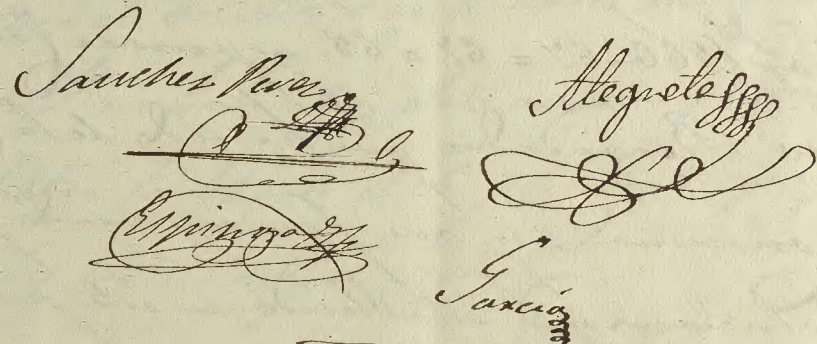 Sanchez Perez
Alegrete
Espinoza
Garcia